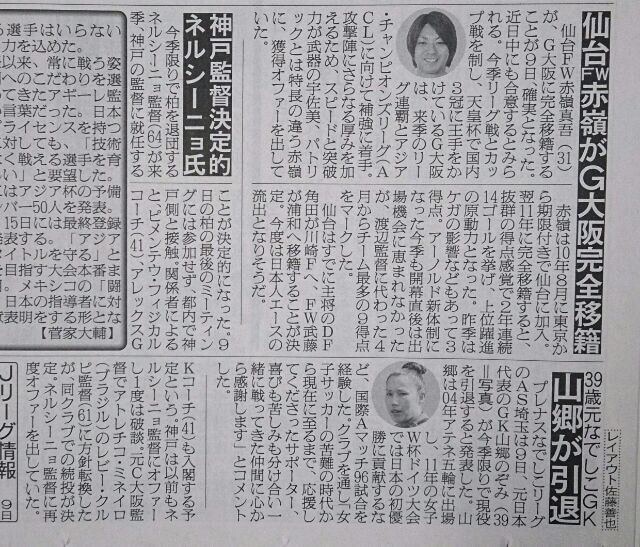 仙台FW赤嶺がG大阪完全移籍
仙台FW赤嶺真吾(31)
が、G大阪に完全移籍する
ことが9日、確実となった。
近日中にも合意するとみら
れる。今季リーグ戦とカッ
プ戦を制し、天皇杯で国内
3冠に王手をか
けているG大阪
は、来季のリー
グ連覇とアジア
チャンピオンズリーグ(A
CL)に向けて補強に着手。
攻撃陣にさらなる厚みを加
えるため、スピードと突破
力が武器の宇佐美、パトリ
ックとは特長の違う赤嶺
に、獲得オファーを出して
いた。
赤嶺は10年8月に東京か
ら期限付きで仙台に加入。
翌11年に完全移籍すると、
抜群の得点感覚で2年連続
14ゴールを挙げ、上位躍進
の原動力となった。昨季は
ケガの影響などもあって3
得点。アーノルド新体制に
なった今季も開幕直後は出
場機会に恵まれなかった
が、渡辺監督に代わった4
月からチーム最多の9得点
をマークした。
仙台はすでに主将のDF
角田が川崎Fへ、FW武藤
が浦和へ移籍することが決
定。今度は日本人エースの
流出となりそうだ。
神戸監督決定的
ネルシーニョ氏
今季限りで柏を退団する
ネルシーニョ監督(64)が来
季、神戸の監督に就任する
ことが決定的になった。9
日の柏の最後のミーティン
グには参加せず、都内で神
戸側と接触。関係者による
と、ビメンテウ・フィジカル
コーチ(41)アレックスG
Kコーチ(41)も入閣する予
定という。神戸は以前もネ
ルシーニョ監督にオファー
し1度は破談。元C大阪監
督でアトレチコ・ミネイロ
(ブラジル)のレビー・クル
ピ監督(61)に方針転換した
が、同クラブでの続投が決
定。ネルシーニョ監督に再
度オファーを出していた。
レイアウト 佐藤善也
39歳元なでしこGK
山郷が引退
プレナスなでしこリーグ
のAS埼玉は9日、元日本
代表のGK山郷のぞみ(39
=写真)が今季限りで現役
を引退すると発表した。山
郷は04年アテネ五輪に出場
し、11年の女子
W杯ドイツ大会
では日本の初優
勝に貢献するな
ど、国際Aマッチ96試合を
経験した。クラブを通し「女
子サッカーの苦難の時代か
ら現在に至るまで、応援し
てくださったサポーター、
喜びも苦しみも分け合い一
緒に戦ってきた仲間に心か
ら感謝します」とコメント
した。
る選手はいらない
力を込めた。
来以来、常に戦う姿
利へのこだわりを選
ってきたアギーレ監
い言葉だった。日本
ライセンスを持つ
に対しても、「技術
く戦える選手を育
い」と要望した。
にはアジア杯の予備
ンバー50人を発表。
15日には最終登録
発表する。「アジア
タイトルを守る」と
を目指す大会本番ま
月。メキシコの「闘
、日本の指導者に対
状表明をする形とな
【菅家大輔】
Jリーグ情報
9日